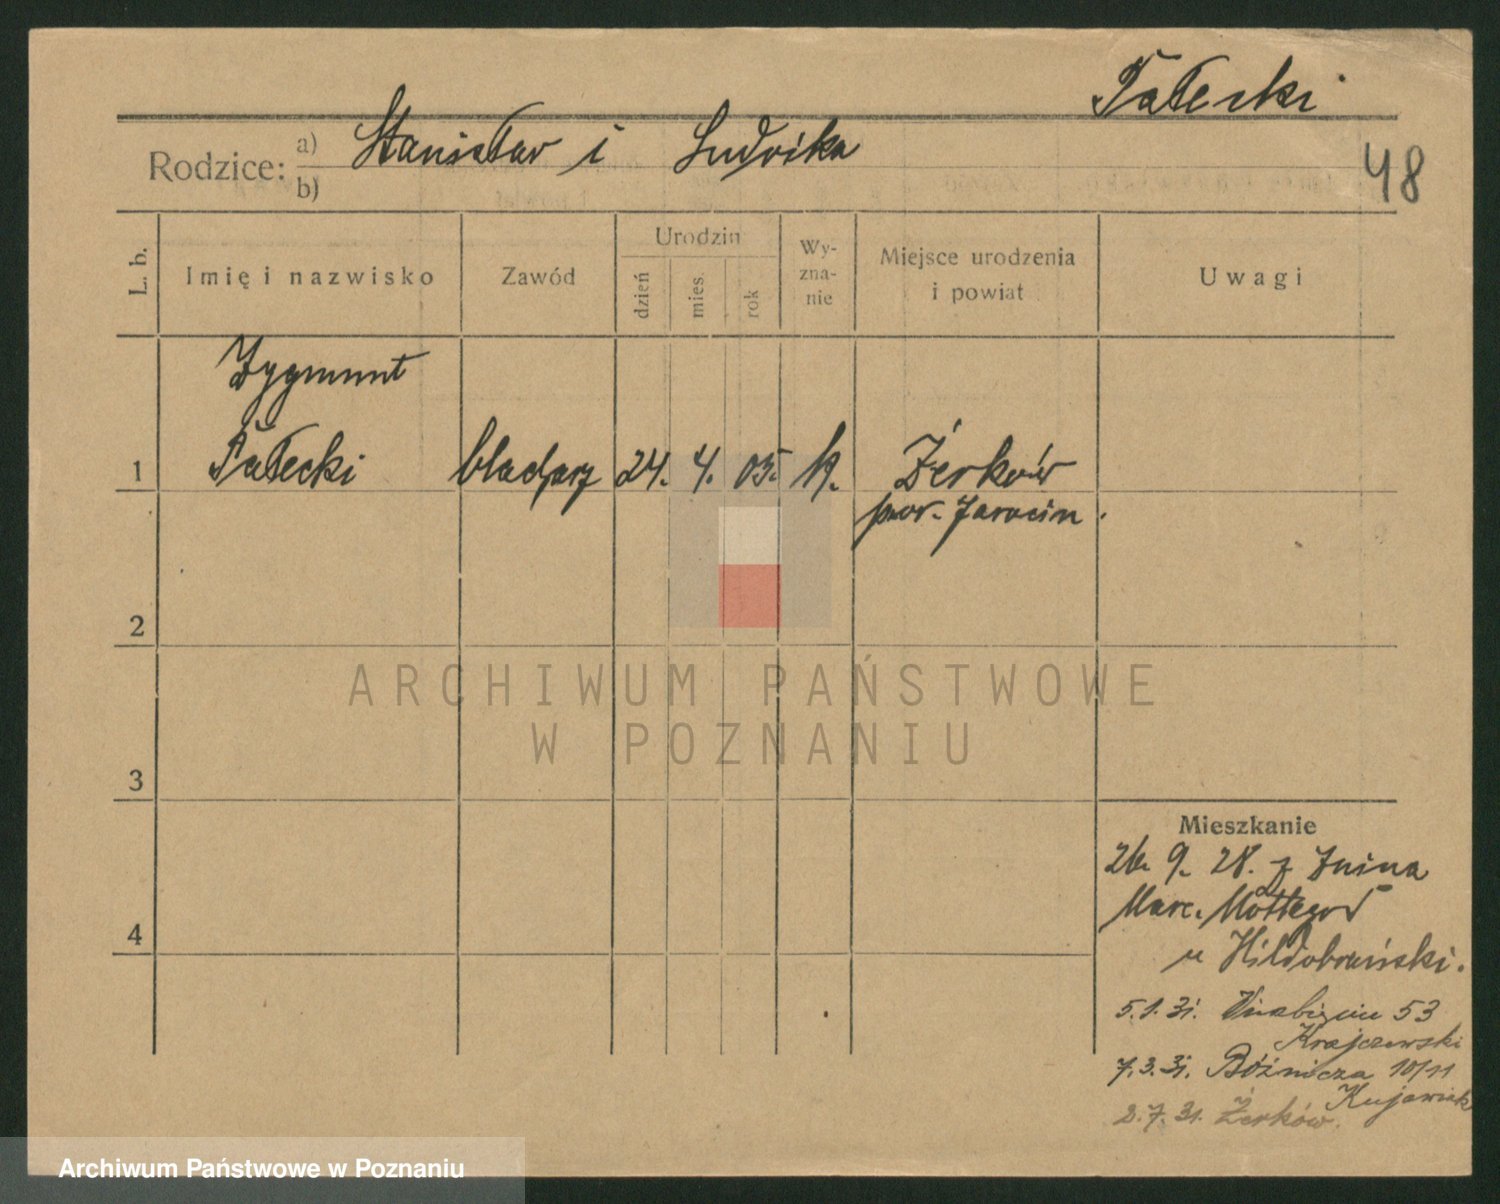 Pałecki
Rodzice: a) Stanisław i Ludwika
b)
48
L. b.
Imię i nazwisko
Zawód
Urodzin
dzień
mies.
rok
Wy-
zna-
nie
Miejsce urodzenia
i powiat
Uwagi
Zygmunt
1 Pałecki blacharz 24. 4. 05. k. Żerków
pow. Jarocin.
2
3
4
Mieszkanie
26. 9. 28. z Żnina
Marc.
u
5.1.31. 53
Krajczewski
7.3.31. Bóźnicza 10/11
Kujawiak
2.7.31. Żerków.
ARCHIWUM PAŃSTWOWE
W POZNANIU
Archiwum Państwowe w Poznaniu